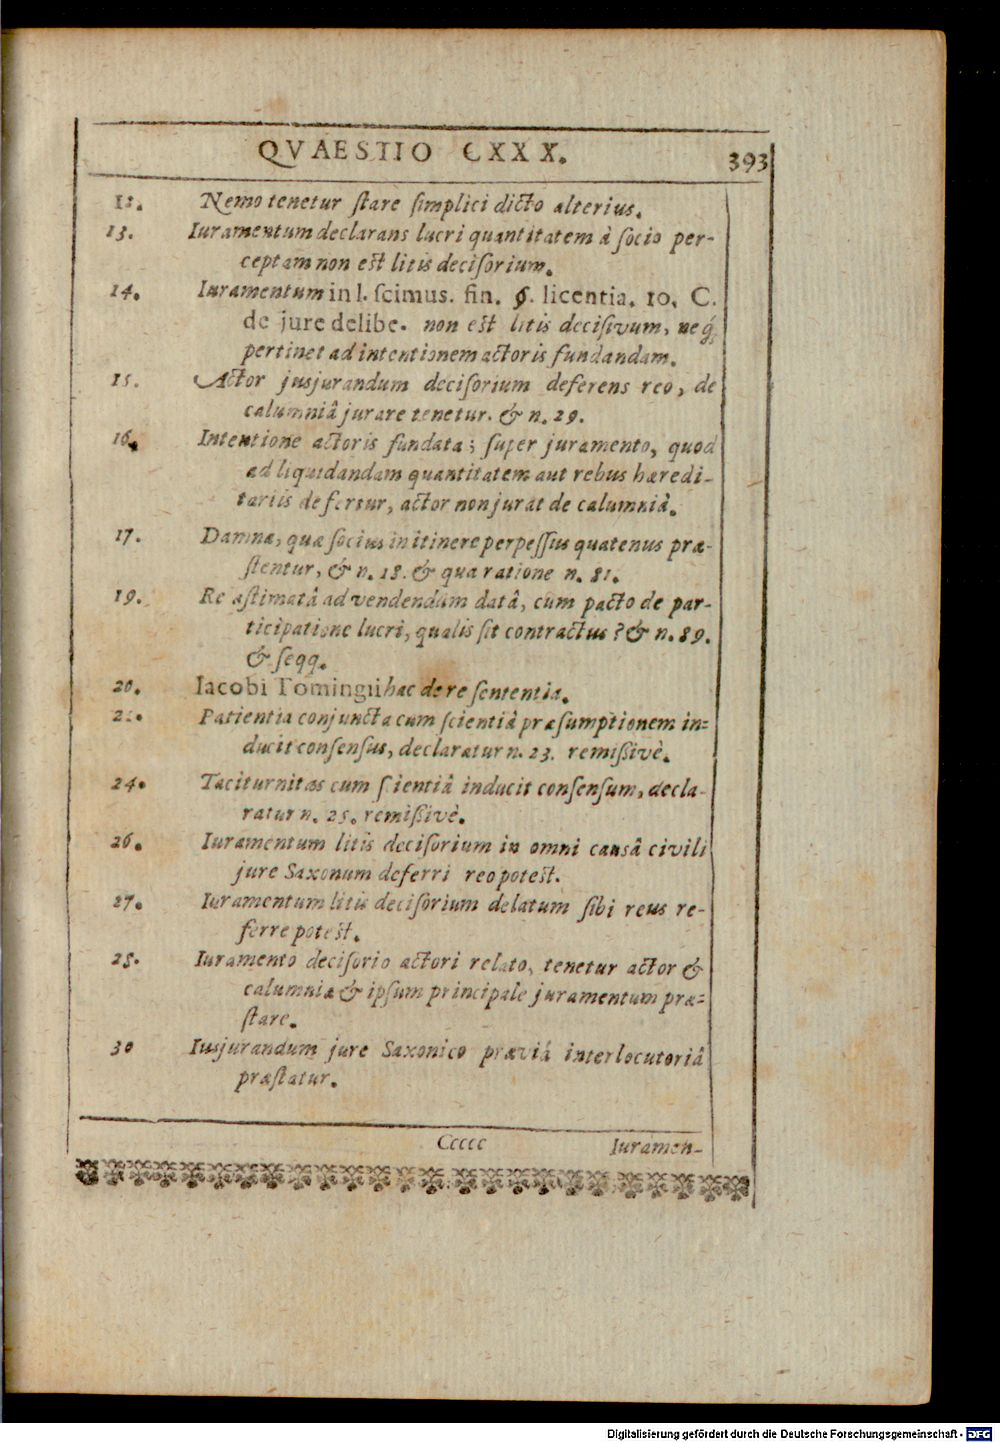 QVAESTIO CXXX. 393
12. Nemo tenetur ſtare ſimplici dicto alterius.
13. Iuramentum declarans lucri quantitatem à ſocio per-
ceptam non eſt litis deciſorium.
14. Iuramentum in l. ſcimus. fin. §. licentia. 10. C.
de jure delibe. non eſt litis deciſivum, neq́;
pertinet ad intentionem actoris fundandam.
15. Actor jusjurandum deciſorium deferens reo, de
calumniâ jurare tenetur. & n. 29.
16. Intentione actoris fundata; ſuper juramento, quod
ad liquidandam quantitatem aut rebus hæredi-
tariis defertur, actor non jurat de calumniâ.
17. Damna, quæ ſocius in itinere perpeſſus quatenus præ-
ſtentur, & n. 18. & qua ratione n. 81.
19. Re æſtimatâ ad vendendum datâ, cum pacto de par-
ticipatione lucri, qualis ſit contractus? & n. 89.
& ſeqq.
20. Iacobi Tomingii hac de re ſententia.
21. Patientia conjuncta cum ſcientiâ præſumptionem in-
ducit conſenſus, declaratur n. 23. remißivè.
24. Taciturnitas cum ſcientiâ inducit conſenſum, decla-
ratur n. 25. remißivè.
26. Iuramentum litis deciſorium in omni cauſâ civili
jure Saxonum deferri reo poteſt.
27. Iuramentum litis deciſorium delatum ſibi reus re-
ferre poteſt.
28. Iuramento deciſorio actori relato, tenetur actor &
calumniæ & ipſum principale juramentum præ-
ſtare.
30 Iusjurandum jure Saxonico præviâ interlocutoriâ
præſtatur.
Ccccc Iuramen-
Digitalisierung gefördert durch die Deutsche Forschungsgemeinschaft - DFG